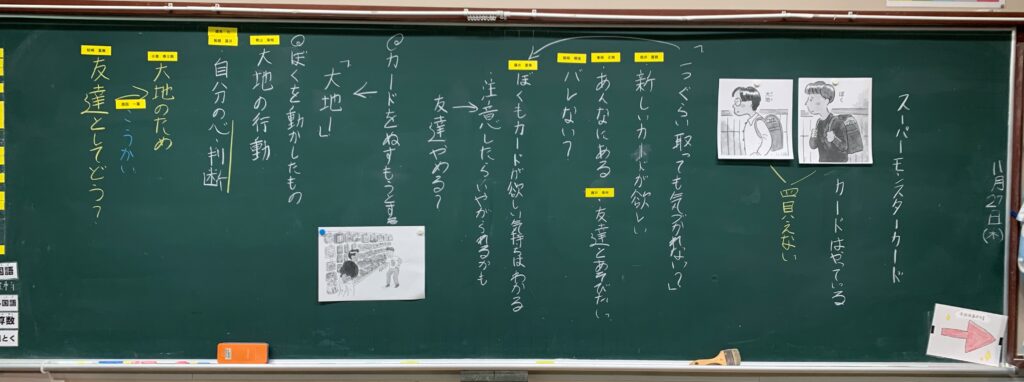 11月27日(木)
スーパーモンスターカード
カードはやっている
買えない
ぼく
「一つぐらい取っても気づかれない?」
新しいカードが欲しい
あんなにある
・友達とあそびたい
バレない?
ぼくもカードが欲しい気持ちはわかる
・注意したらいやがられるかも
→友達やめる?
◎カードをぬすもうとする
←
「大地!」
◎ぼくを動かしたもの
大地の行動
自分の心・判断
大地のため
こうかい
友達としてどう?
国語
算数